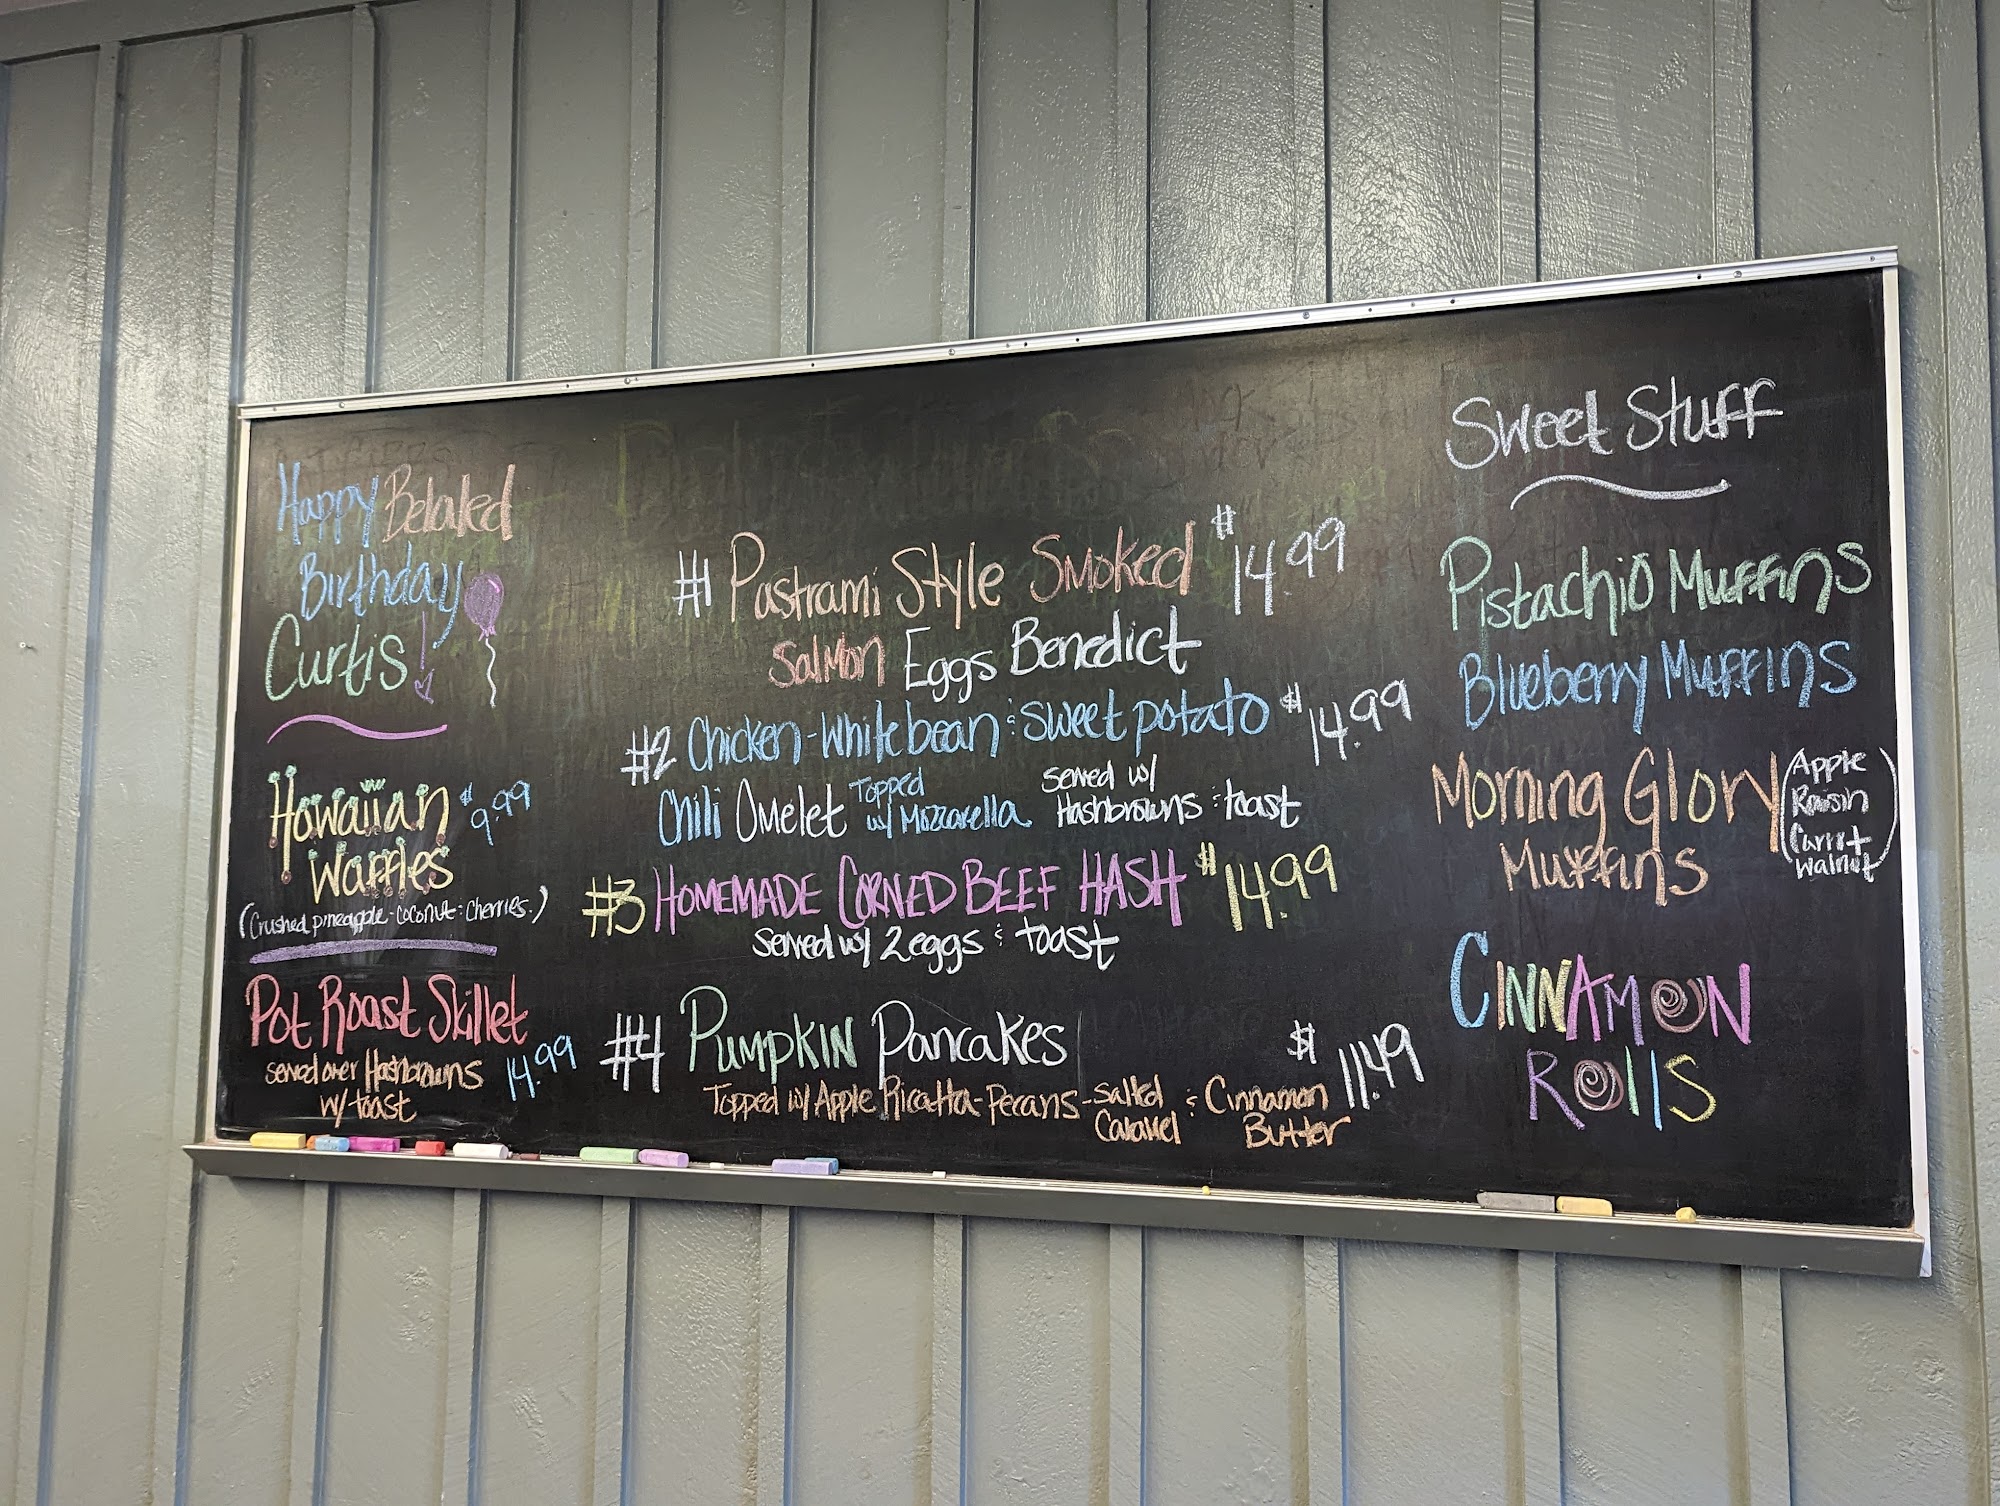 Happy Belated
Birthday
Curtis!
Hawaiian $9.99
Waffles
(Crushed pineapple-coconut & cherries.)
Pot Roast Skillet
served over Hashbrowns 14.99
w/ toast
#1 Pastrami Style Smoked $14.99
Salmon Eggs Benedict
#2 Chicken-White bean & sweet potato $14.99
Chili Omelet Topped w/ Mozzarella served w/ Hashbrowns & toast
#3 HOMEMADE CORNED BEEF HASH $14.99
served w/ 2 eggs & toast
#4 Pumpkin Pancakes $11.49
Topped w/ Apple Ricatta-Pecans-Salted Caramel & Cinnamon Butter
Sweet Stuff
Pistachio Muffins
Blueberry Muffins
Morning Glory
Muffins
(Apple
Raisin
Carrot
Walnut)
CINNAMON
ROllS